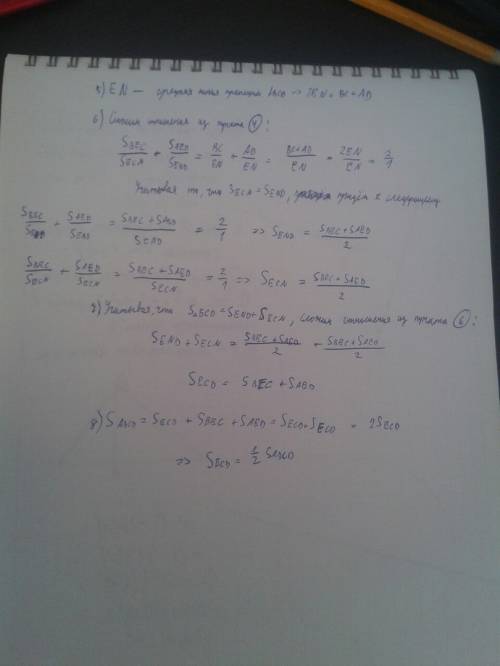 5) EN — средняя линия трапеции ABCD => 2EN = BC + AD
6) Сложим отношения из пункта (4):
S_BEC/S_ECN + S_AED/S_END = BC/EN + AD/EN = (BC+AD)/EN = 2EN/EN = 2/1
Учитывая то, что S_ECN = S_END, придём к следующему
S_BEC/S_END + S_AED/S_END = (S_BEC + S_AED)/S_END = 2/1 => S_END = (S_BEC + S_AED)/2
S_BEC/S_ECN + S_AED/S_ECN = (S_BEC + S_AED)/S_ECN = 2/1 => S_ECN = (S_BEC + S_AED)/2
7) Учитывая, что S_ECD = S_END + S_ECN, сложим отношения из пункта (6):
S_END + S_ECN = (S_BEC + S_AED)/2 + (S_BEC + S_AED)/2
S_ECD = S_BEC + S_AED
8) S_ABCD = S_ECD + S_BEC + S_AED = S_ECD + S_ECD = 2S_ECD
=> S_ECD = 1/2 S_ABCD